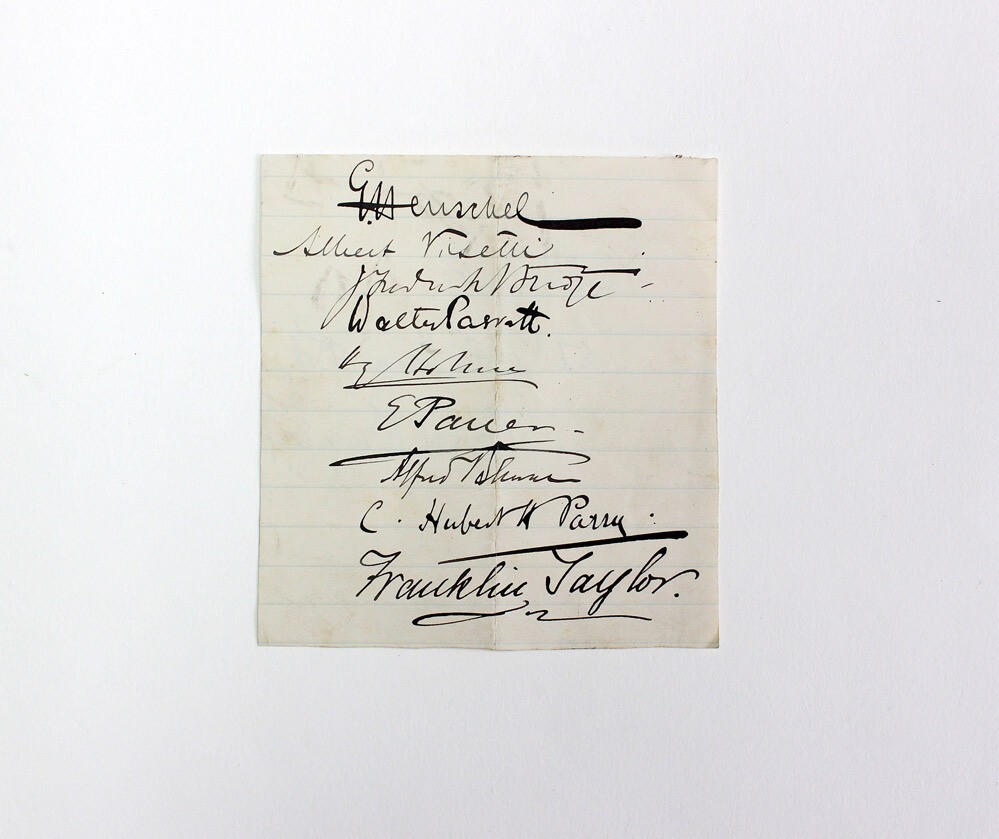 G. Henschel
Albert Visetti
J Frederick Bridge
Walter Parratt.
Hy Holmes
E Pauer
Alfred
C. Hubert H Parry.
Franklin Taylor.